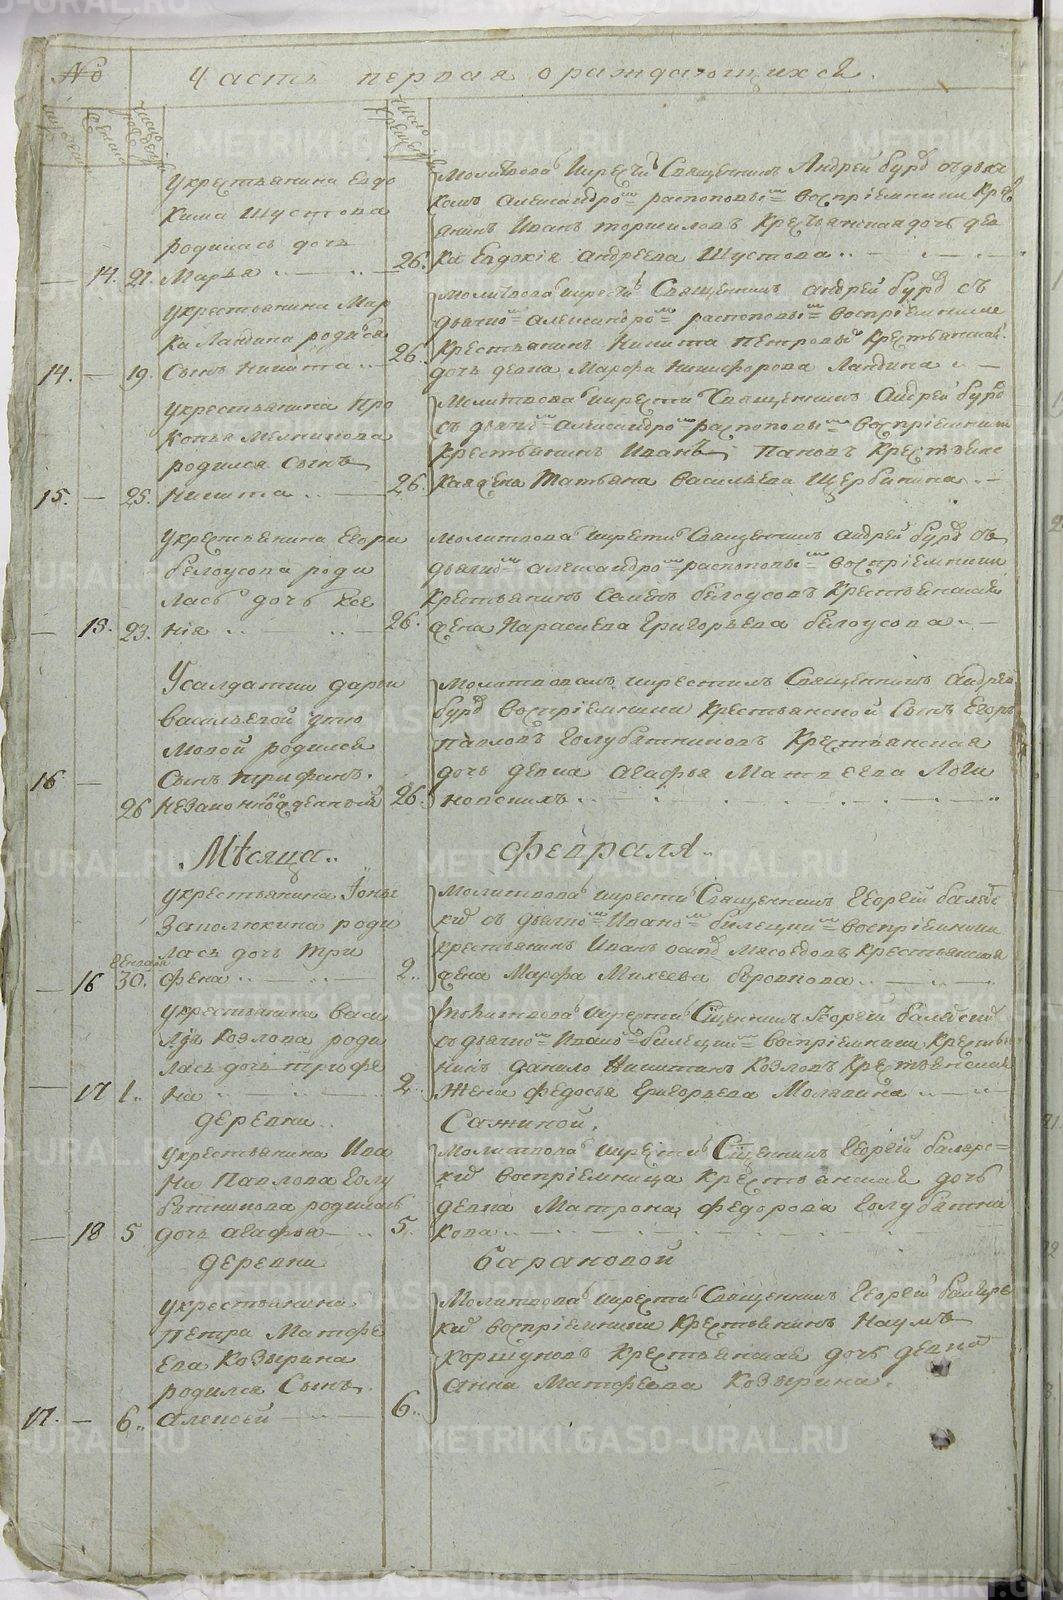 № Часть первая о раждающихся.
мужеска
женска
число рожденія
число крещенія
У крестьянина Евдо
кима Шустова
родилась дочь
14. 21. Марья
26.
Молитвовалъ и крестилъ Священникъ Андрей бурд съ дьяч
комъ александромъ распоповымъ воспріемники Крес
янинъ Иванъ торшиловъ Крестьянская дочь дев
ка Евдокія андреева Шустова
у крестьянина Мар
ка Ландина родился
14. 19. Сынъ никита
26.
молитвовалъ и крестилъ Священникъ андрей бурд съ
дьячко александро распоповы воспріемники
Крестьянинъ Никита петровъ Крестьянская
дочь девка Марфа Никифорова Ландина
у крестьянина Про
копья Мелникова
родился Сынъ
15. 25. никита
26.
Молитвовалъ и крестилъ Священникъ Андрей бурд
съ дьячко александро распоповы воспріемники
Крестьянинъ Иванъ Пановъ Крестьянс
кая жена Татьяна васильева Щербинина
у крестьянина Егора
белоусова роди
лась дочь Ксе
15. 23. нія
26.
молитвовалъ и крестилъ Священникъ андрей бурд съ
дьячко александро распоповы воспріемники
Крестьянинъ Семенъ белоусовъ Крестьянская
жена Парасковья Григорьева белоусова
У салдатки дарьи
васильевой
родился
Сынъ трифанъ.
16 26 незаконнорожденный
26.
Молитвовалъ и крестилъ Священникъ андрей
бурд воспріемники Крестьянской Сынъ Егоръ
павловъ Голубятниковъ Крестьянская
дочь девка агафья Матвеева Логи
новскихъ
Мѣсяца.. Февраля.
у крестьянина Іоны
Заполюкина роди
лась дочь три
16 генваря 30. фена
2.
Молитвовалъ и крестилъ Священникъ Георгій балярс
кій съ дьячко Ивано билецки воспріемники
крестьянинъ Иванъ Мясоедовъ Крестьянская
жена Марфа Михеева боровкова
у крестьянина васи
лья Козлова роди
лась дочь трифе
17 1. на
2.
Молитвовалъ и крестилъ Священникъ Георгій балярскій
съ дьячко Ивано билецки воспріемники Крестья
нинъ данило Никитинъ Козловъ Крестьянская
жена федосья Григорьева Молявина
деревни Сажиной.
у крестьянина Ива
на Павлова Голу
бятникова родилась
18 5 дочь агафья
5.
Молитвовалъ и крестилъ Священникъ Георгій балярс
кій воспріемница Крестьянская дочь
девка Матрона федорова Голубятни
кова
деревни барановой
у крестьянина
петра Матфе
ева Козырина
родился Сынъ
17. 6. алексей
6.
Молитвовалъ и крестилъ Священникъ Георгій балярс
кій воспріемники Крестьянинъ Наумъ
Коршуновъ Крестьянская дочь девка
Анна Матфеева Козырина.
METRIKI.GASO-URAL.RU